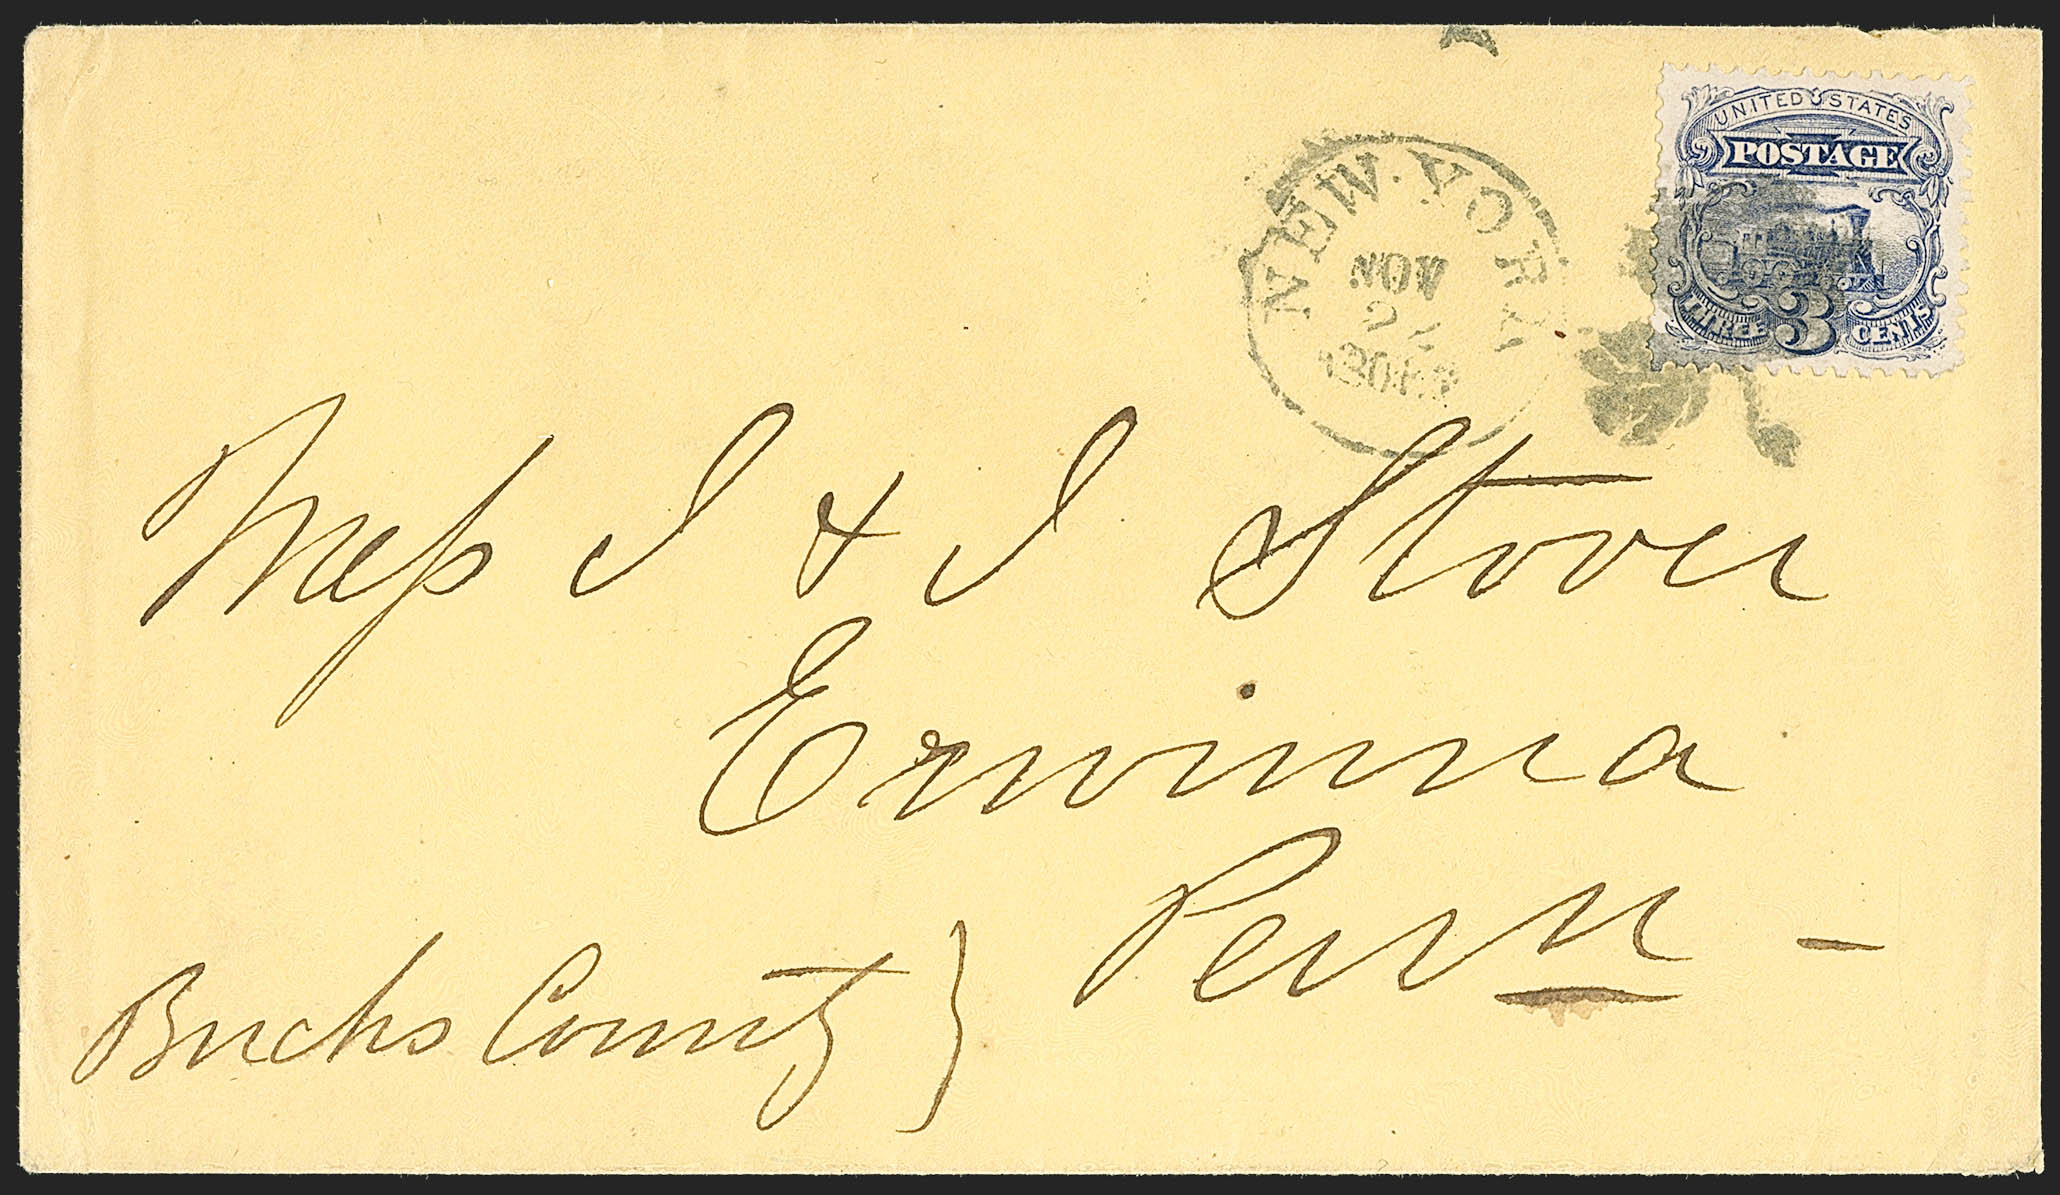 UNITED STATES
POSTAGE
THREE 3 CENTS
NEW YORK
NOV
22
Mess I & I Stover
Erwinna
Penn -
Bucks County }